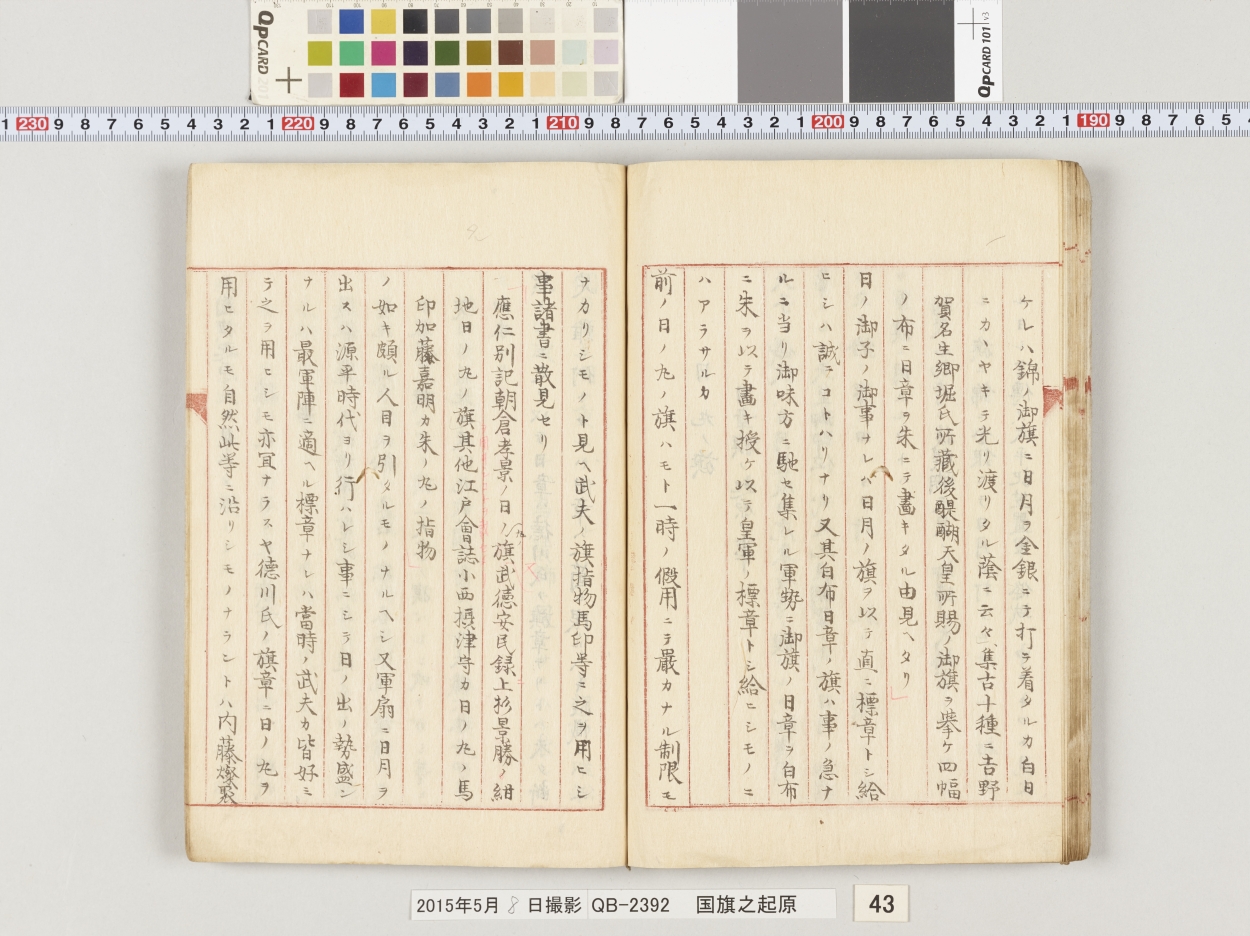 QPCARD
QPCARD 101 v3
1 230 9 8 7 6 5 4 3 2 1 220 9 8 7 6 5 4 3 2 1 210 9 8 7 6 5 4 3 2 1 200 9 8 7 6 5 4 3 2 1 190 9 8 7 6 5
ケレハ錦ノ御旗ニ日月ヲ金銀ニテ打テ着タルカ白日
ニカヽヤキテ光リ渡リタル蔭ニ云々集古十種ニ吉野
賀名生郷堀氏所藏後醍醐天皇所賜ノ御旗ヲ挙ケ四幅
ノ布ニ日章ヲ朱ニテ畫キタル由見ヘタリ
日ノ御子ノ御事ナレハ日月ノ旗ヲ以テ直ニ標章トシ給
ヒシハ誠ニコトハリナリ又其白布日章ノ旗ハ事ノ急ナ
ルニ当リ御味方ニ馳セ集レル軍勢ニ御旗ノ日章ヲ白布
ニ朱ヲ以テ畫キ授ケ以テ皇軍ノ標章トシ給ヒシモノニ
ハアラサルカ
前ノ日ノ丸ノ旗ハモト一時ノ假用ニテ嚴カナル制限モ
ナカリシモノト見ヘ武夫ノ旗指物馬印等ニ之ヲ用ヒシ
事諸書ニ散見セリ
應仁別記朝倉孝景ノ日ノ丸ノ旗武徳安民録上杉景勝ノ紺
地日ノ丸ノ旗其他江戸會誌小西摂津守カ日ノ丸ノ馬
印加藤嘉明カ朱ノ丸ノ指物
ノ如キ頗ル人目ヲ引クルモノナルヘシ又軍扇ニ日月ヲ
出スハ源平時代ヨリ行ハレシ事ニシテ日ノ出ノ勢盛ン
ナルハ最軍陣ニ適ヘル標章ナレハ當時ノ武夫カ皆好ミ
テ之ヲ用ヒシモ亦宜ナラスヤ徳川氏ノ旗章ニ日ノ丸ヲ
用ヒタルモ自然此等ニ沿リシモノナラントハ内藤燦聚
2015年5月8日撮影 QB-2392 国旗之起原
43